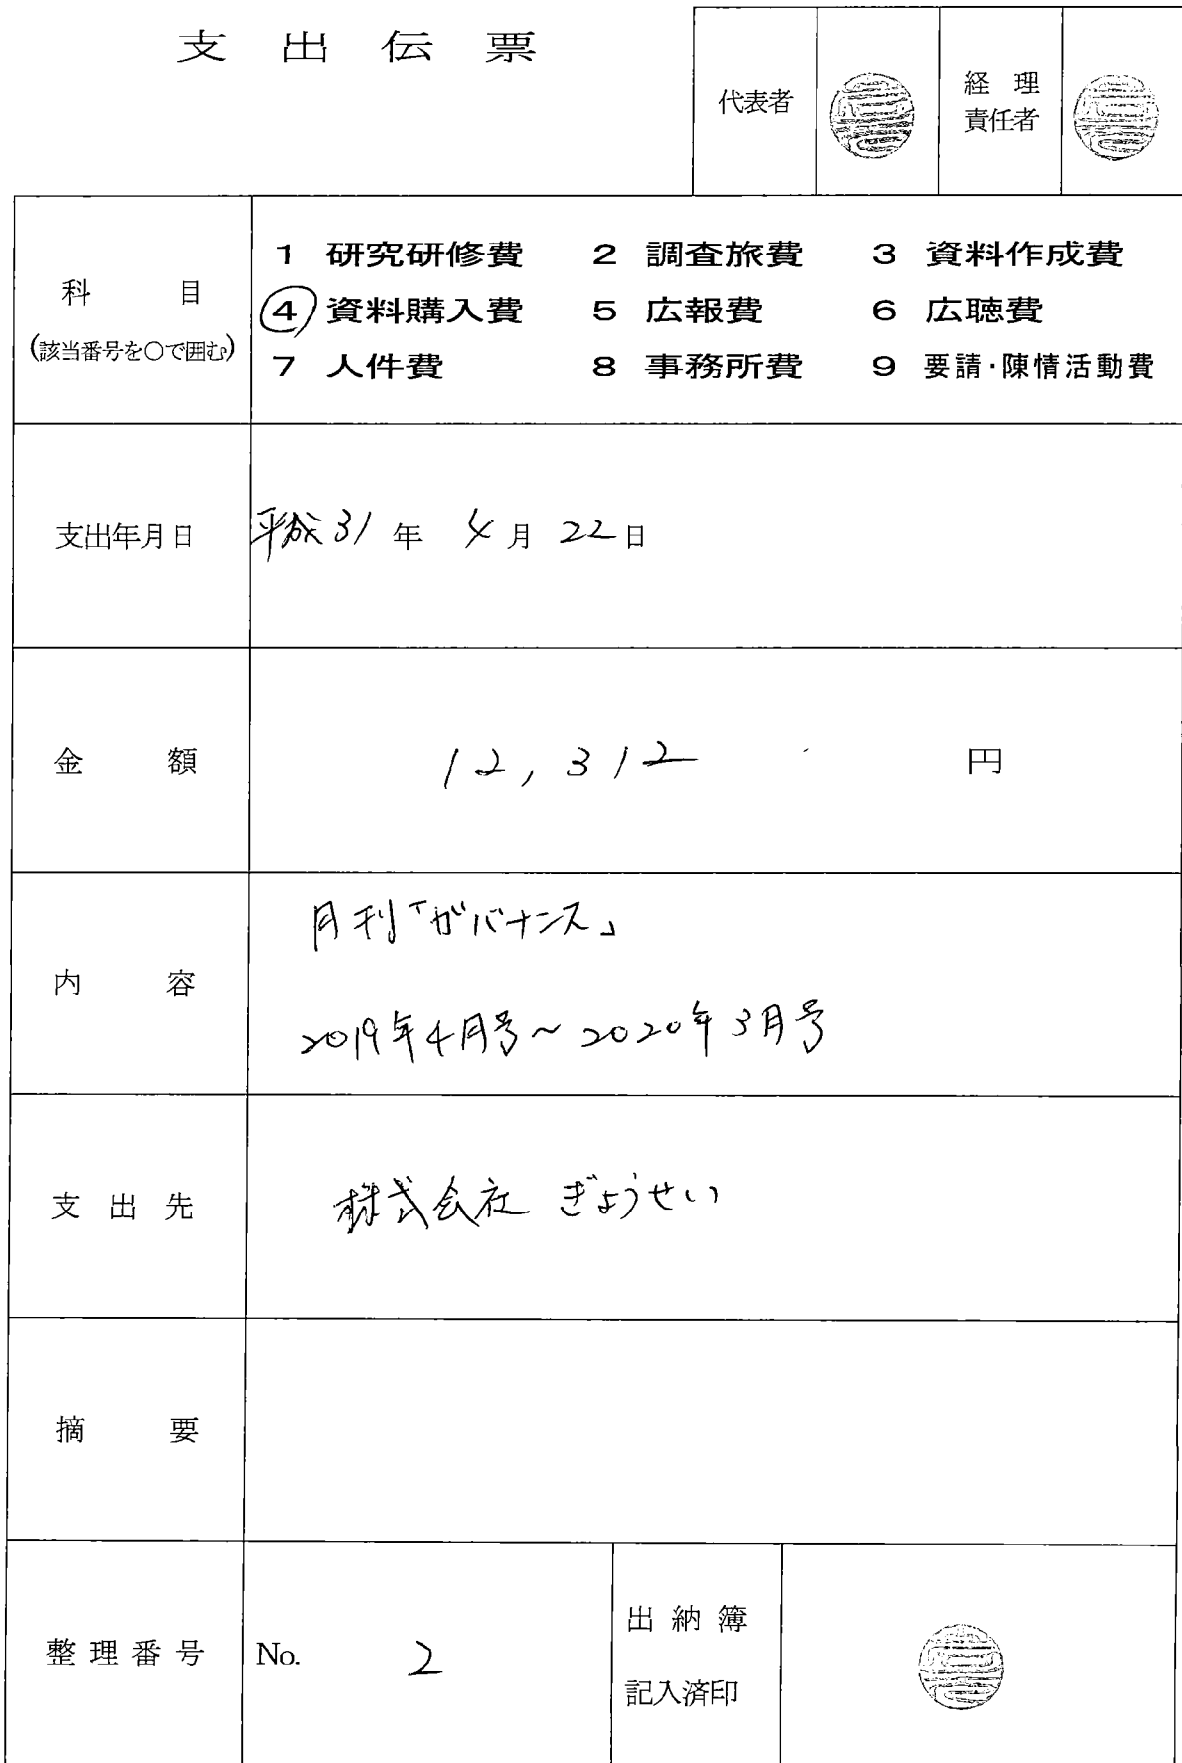 支出伝票
代表者
経理
責任者
科目
(該当番号を○で囲む)
1 研究研修費 2 調査旅費 3 資料作成費
④ 資料購入費 5 広報費 6 広聴費
7 人件費 8 事務所費 9 要請・陳情活動費
支出年月日
平成31年 4月22日
金額
12,312 円
内容
月刊「ガバナンス」
2019年4月号~2020年3月号
支出先
株式会社 ぎょうせい
摘要
整理番号
No. 2
出納簿
記入済印